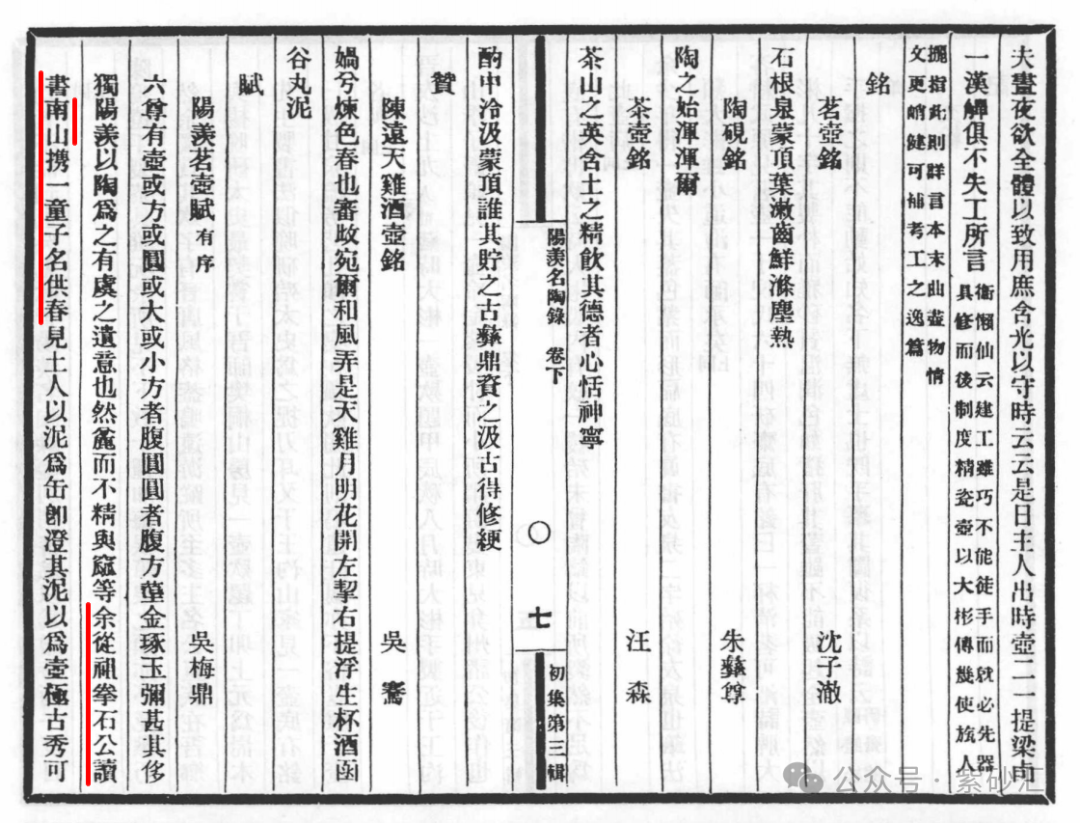 夫晝夜欲全體以致用庶含光以守時云云是日主人出時壺二一提梁卣
一漢觶俱不失工所言
衛懶仙云建工雖巧不能徒手而就必先器
具修而後制度精瓷壺以大彬傳幾使旅人
擨指此則詳言本末曲盡物情
文更峭健可補考工之逸篇
銘
茗壺銘 沈子澈
石根泉蒙頂葉漱齒鮮滌塵熱
陶硯銘 朱彝尊
陶之始渾渾爾
茶壺銘 汪森
茶山之英含土之精飲其德者心恬神寧
陽羨名陶錄 卷下
七
初集第三輯
酌中泠汲蒙頂誰其貯之古彝鼎資之汲古得修綆
贊
陳遠天雞酒壺銘 吳騫
媧兮煉色春也審𢻫宛爾和風弄是天雞月明花開左挈右提浮生杯酒函
谷丸泥
賦
陽羨茗壺賦 有序 吳梅鼎
六尊有壺或方或圓或大或小方者腹圓圓者腹方亶金琢玉彌甚其侈
獨陽羨以陶為之有虞之遺意也然麄而不精與窳等余從祖拳石公讀
書南山攜一童子名供春見土人以泥為缶卽澄其泥以為壺極古秀可
公众号·紫砂汇